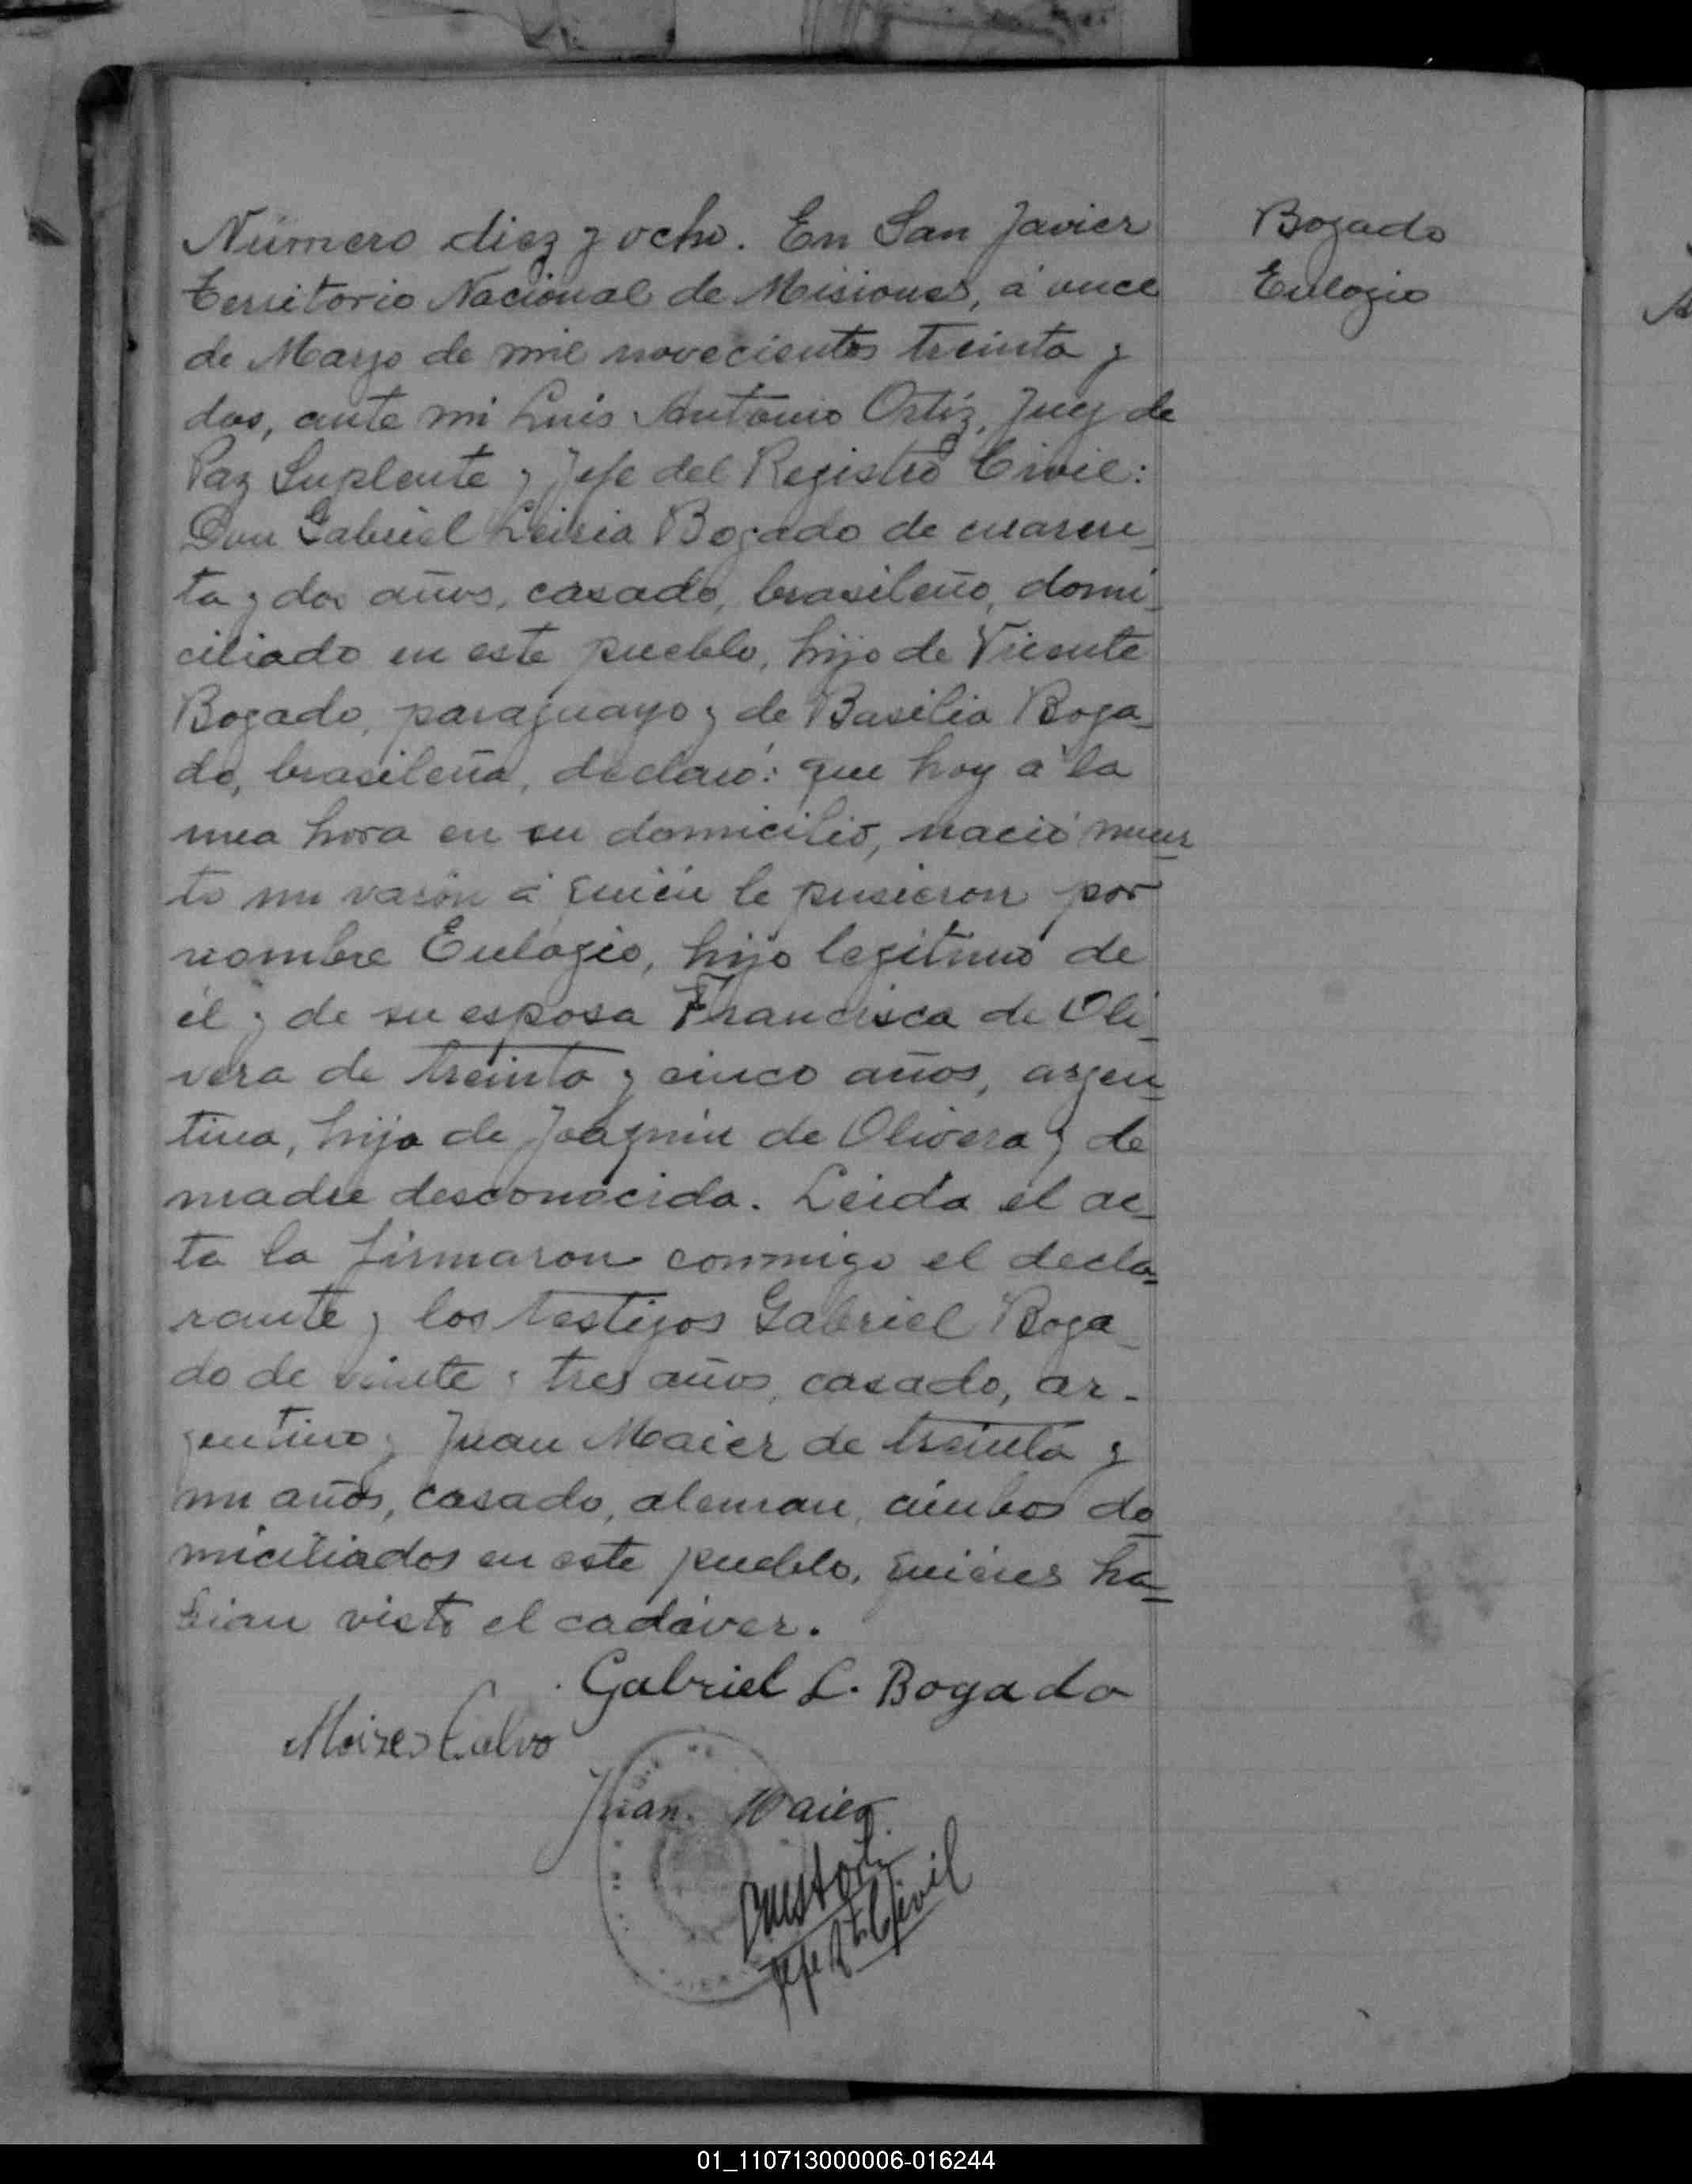 Número diez y ocho. En San Javier
Territorio Nacional de Misiones, á once
de Marzo de mil novecientos treinta y
dos, ante mi Luis Antonio Ortiz, Juez de
Paz Suplente y Jefe del Registro Civil:
Don Gabriel Leiria Bogado de cuaren_
ta y dos años, casado, brasileño, domi_
ciliado en este pueblo, hijo de Vicente
Bogado, paraguayo y de Basilia Boga_
do, brasileña, declaró: que hoy á la
una hora en su domicilio, nació muer_
to un varón á quién le pusieron por
nombre Eulogio, hijo legitimo de
él y de su esposa Francisca de Oli_
vera de treinta y cinco años, argen_
tina, hija de Joaquin de Olivera y de
madre desconocida. Leida el ac_
ta la firmaron conmigo el decla_
rante y los testigos Gabriel Boga_
do de veinte y tres años, casado, ar-
gentino y Juan Maier de treinta y
un años, casado, aleman, ambos do_
miciliados en este pueblo, quiénes ha_
bian visto el cadáver.
Gabriel L. Bogado
Moises Calvo
Juan Maier
Jefe Rtro Civil
Bogado
Eulogio
01_110713000006-016244